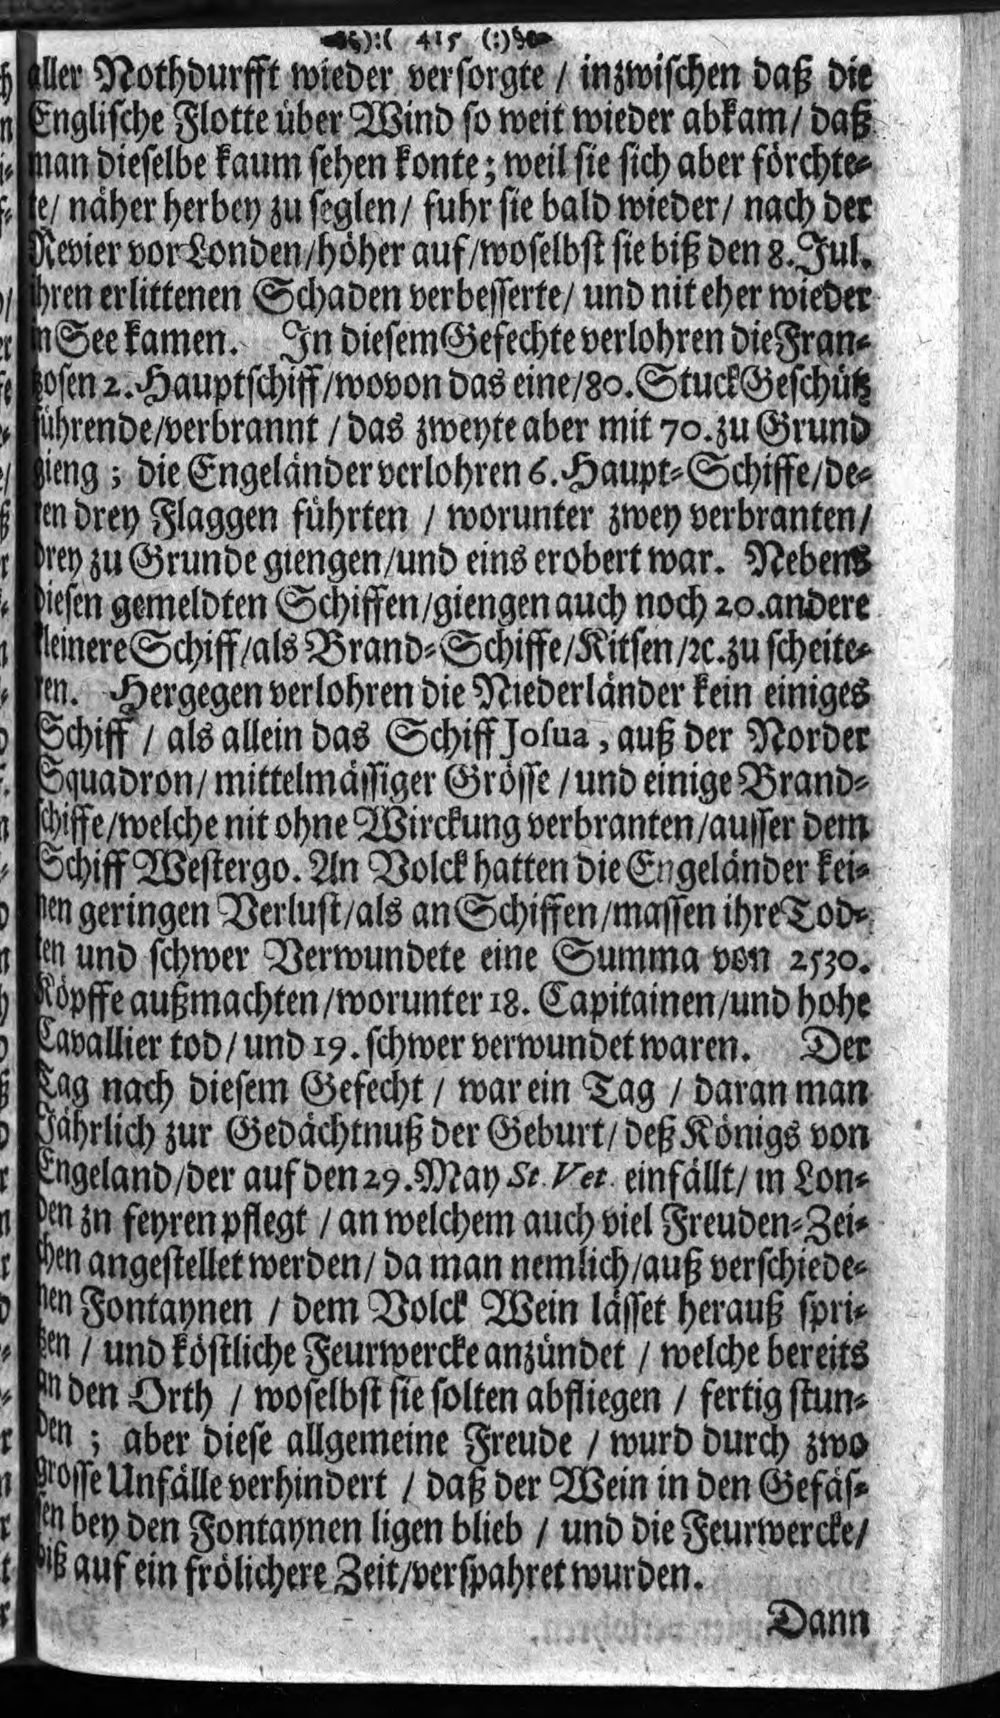 ):( 415 (:)
aller Nothdurfft wieder versorgte / inzwischen daß die
Englische Flotte über Wind so weit wieder abkam / daß
man dieselbe kaum sehen konte; weil sie sich aber förchte-
te / näher herbey zu seglen / fuhr sie bald wieder / nach der
Revier vor Londen / höher auf / woselbst sie biß den 8. Jul.
ihren erlittenen Schaden verbesserte / und nit eher wieder
in See kamen. In diesem Gefechte verlohren die Fran-
tzosen 2. Hauptschiff / wovon das eine / 80. Stuck Geschütz
führende / verbrannt / das zweyte aber mit 70. zu Grund
gieng; die Engeländer verlohren 6. Haupt-Schiffe / de-
ren drey Flaggen führten / worunter zwey verbranten /
drey zu Grunde giengen / und eins erobert war. Nebens
diesen gemeldten Schiffen / giengen auch noch 20. andere
kleinere Schiff / als Brand-Schiffe / Kitsen / ꝛc. zu scheite-
ren. Hergegen verlohren die Niederländer kein einiges
Schiff / als allein das Schiff Josua, auß der Norder
Squadron / mittelmässiger Grösse / und einige Brand-
schiffe / welche nit ohne Wirckung verbranten / ausser dem
Schiff Westergo. An Volck hatten die Engeländer kei-
nen geringen Verlust / als an Schiffen / massen ihre Tod-
ten und schwer Verwundete eine Summa von 2530.
Köpffe außmachten / worunter 18. Capitainen / und hohe
Cavallier tod / und 19. schwer verwundet waren. Der
Tag nach diesem Gefecht / war ein Tag / daran man
Jährlich zur Gedächtnuß der Geburt / deß Königs von
Engeland / der auf den 29. May St. Vet. einfällt / in Lon-
den zn feyren pflegt / an welchem auch viel Freuden-Zei-
chen angestellet werden / da man nemlich / auß verschiede-
nen Fontaynen / dem Volck Wein lässet herauß spri-
tzen / und köstliche Feurwercke anzündet / welche bereits
an den Orth / woselbst sie solten abfliegen / fertig stun-
den; aber diese allgemeine Freude / wurd durch zwo
grosse Unfälle verhindert / daß der Wein in den Gefäs-
sen bey den Fontaynen ligen blieb / und die Feurwercke /
biß auf ein frölichere Zeit / verspahret wurden.
Dann